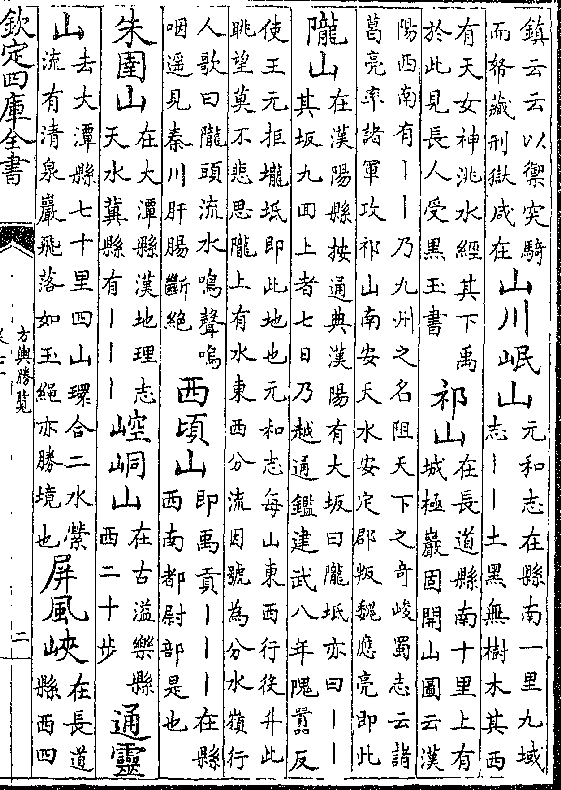 鎮云云以禦突騎
而帑藏刑獄咸在
山川岷山
元和志在縣南一里九域
志丨丨土黑無樹木其西
有天女神洮水經其下禹
於此見長人受黑玉書
祁山
在長道縣南十里上有
城極巖固開山圖云漢
陽西南有丨丨乃九州之名阻天下之奇峻蜀志云諸
葛亮率諸軍攻祁山南安天水安定郡叛魏應亮即此
隴山
在漢陽縣按通典漢陽有大坂曰隴坻亦曰丨丨
其坂九回上者七日乃越通鑑建武八年隗囂反
使王元拒壠坻即此地也元和志每山東西行役升此
眺望莫不悲思隴上有水東西分流因號為分水嶺行
人歌曰隴頭流水鳴聲嗚
咽遥見秦川肝腸斷絶
西頃山
即禹貢丨丨丨在縣
西南都尉部是也
朱圍山
在大潭縣漢地理志
天水冀縣有丨丨丨
崆峒山
在古溢樂縣
西二十步
通靈
山
去大潭縣七十里四山環合二水縈
流有清泉巖飛落如玉繩亦勝境也
屏風峽
在長道
縣西四
欽定四庫全書
方輿勝覽
二